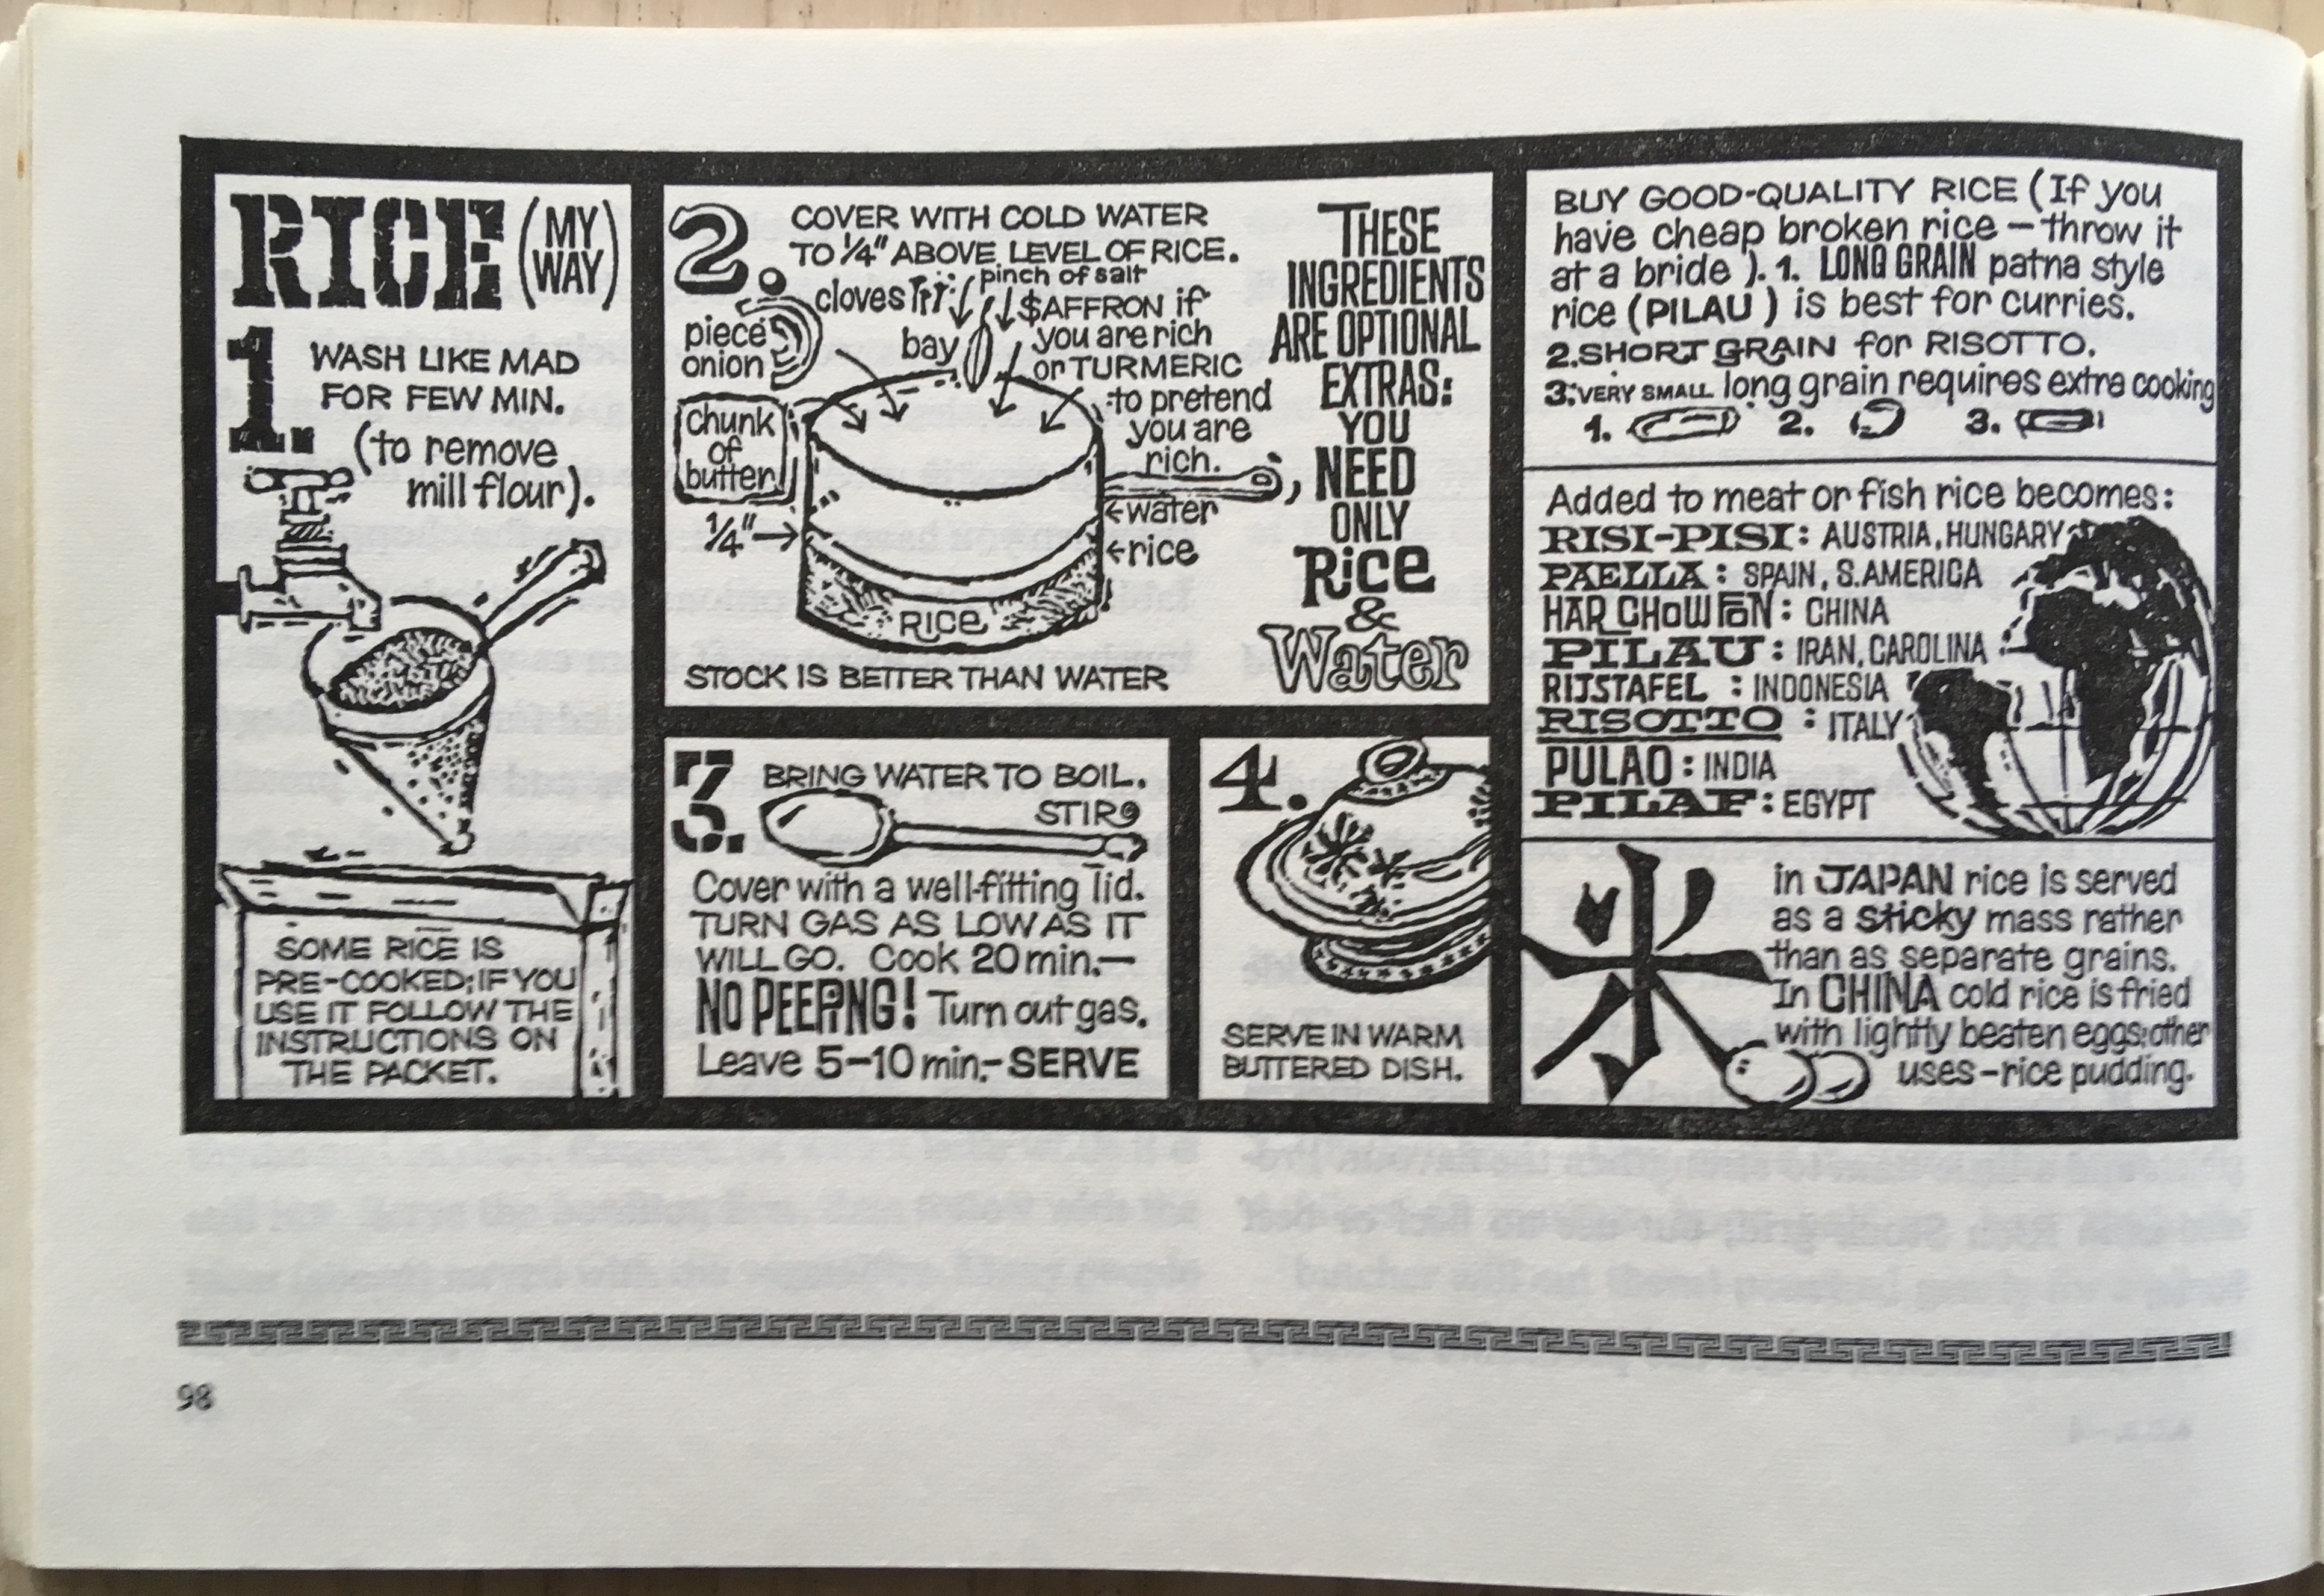 RICE (MY
WAY)
1. WASH LIKE MAD
FOR FEW MIN.
(to remove
mill flour).
SOME RICE IS
PRE-COOKED; IF YOU
USE IT FOLLOW THE
INSTRUCTIONS ON
THE PACKET.
2. COVER WITH COLD WATER
TO ¼" ABOVE LEVEL OF RICE.
pinch of salt
cloves
piece
onion
bay
$AFFRON if
you are rich
or TURMERIC
to pretend
you are
rich.
chunk
of
butter
¼"→
←water
←rice
RICE
STOCK IS BETTER THAN WATER
THESE
INGREDIENTS
ARE OPTIONAL
EXTRAS:
YOU
NEED
ONLY
Rice
&
Water
3. BRING WATER TO BOIL.
STIR
Cover with a well-fitting lid.
TURN GAS AS LOW AS IT
WILL GO. Cook 20 min.—
NO PEEPING! Turn out gas.
Leave 5–10 min.– SERVE
4.
SERVE IN WARM
BUTTERED DISH.
BUY GOOD-QUALITY RICE (If you
have cheap broken rice — throw it
at a bride). 1. LONG GRAIN patna style
rice (PILAU) is best for curries.
2. SHORT GRAIN for RISOTTO.
3. VERY SMALL long grain requires extra cooking
1. 2. 3.
Added to meat or fish rice becomes:
RISI-PISI: AUSTRIA, HUNGARY
PAELLA: SPAIN, S. AMERICA
HAR CHOW FON: CHINA
PILAU: IRAN, CAROLINA
RIJSTAFEL: INDONESIA
RISOTTO: ITALY
PULAO: INDIA
PILAF: EGYPT
米
in JAPAN rice is served
as a sticky mass rather
than as separate grains.
In CHINA cold rice is fried
with lightly beaten eggs: other
uses – rice pudding.
98